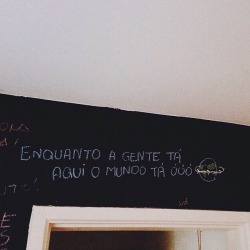 ENQUANTO A GENTE TÁ
AQUI O MUNDO TÁ ÚÚÓ